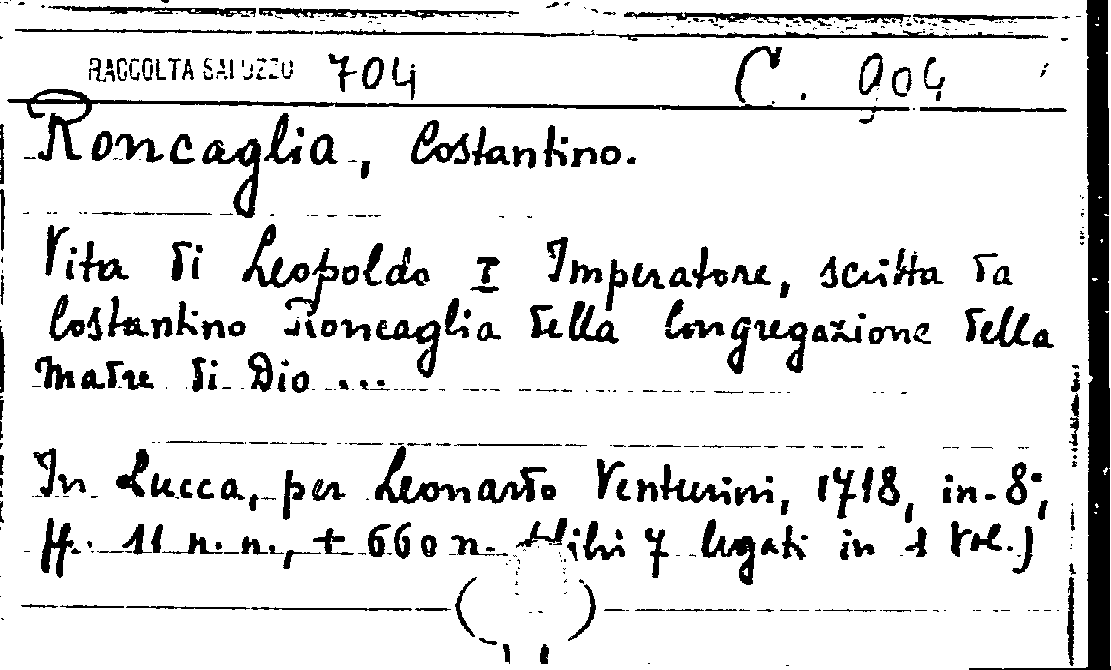 RACCOLTA SALUZZO 704 C. 904
Roncaglia, Costantino.
Vita di Leopoldo I Imperatore, scritta da
Costantino Roncaglia della Congregazione della
Madre di Dio ...
In Lucca, per Leonardo Venturini, 1718, in-8°,
ff. 11 n. n., + 660 n. (libri 7 legati in 1 vol.)